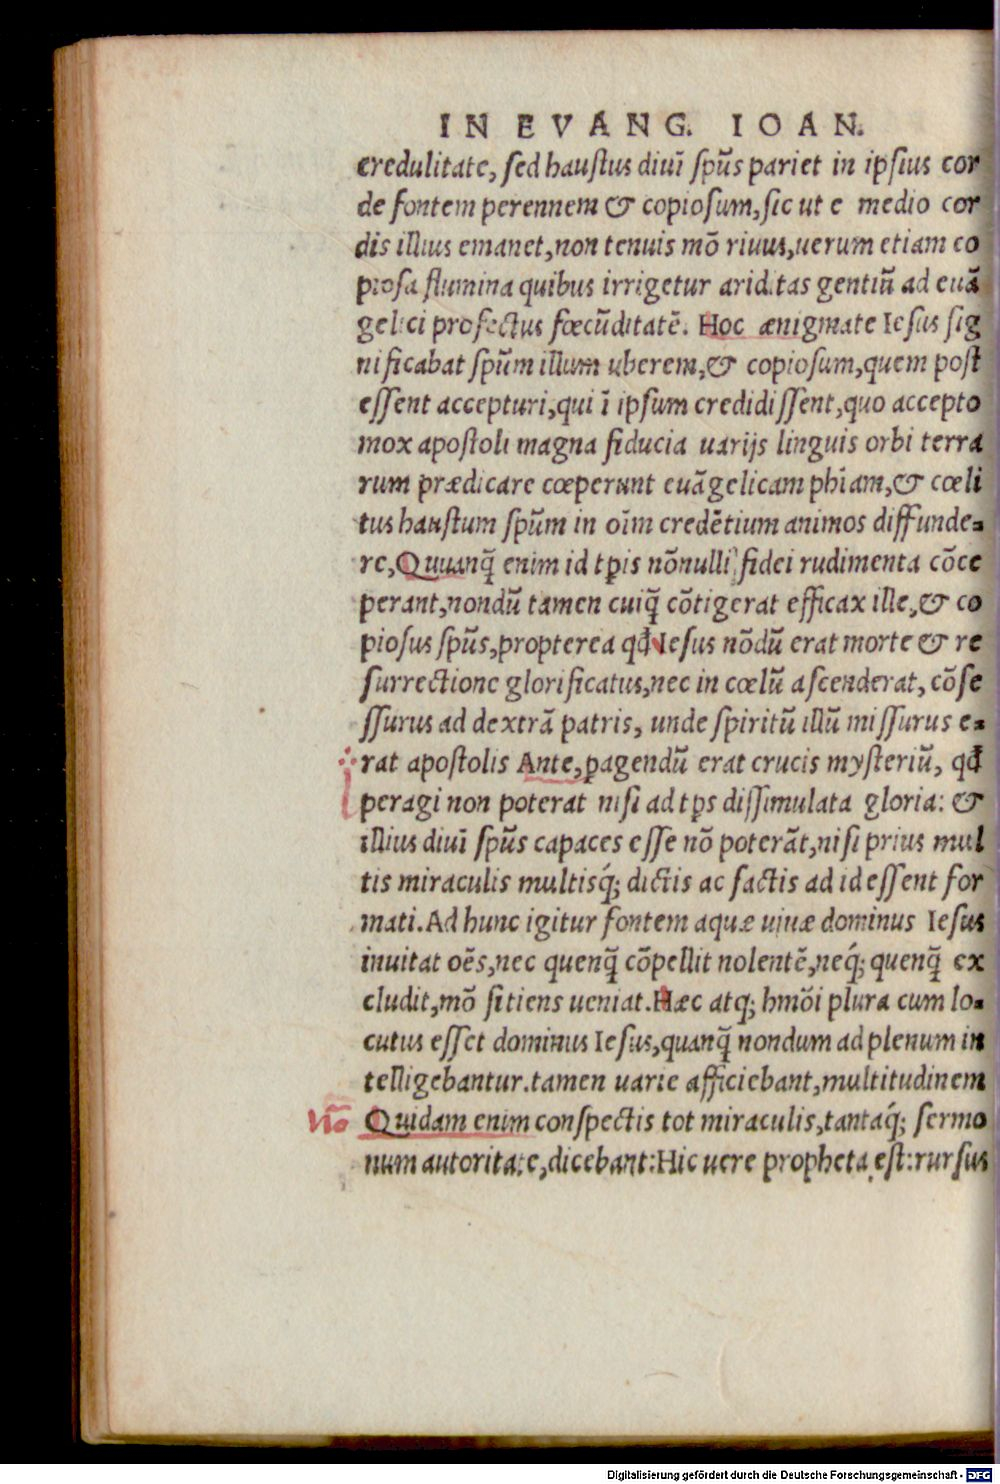 IN EVANG. IOAN.
credulitate, sed haustus diuĩ spũs pariet in ipsius cor
de fontem perennem & copiosum, sic ut e medio cor
dis illius emanet, non tenuis mõ riuus, uerum etiam co
piosa flumina quibus irrigetur ariditas gentiũ ad euã
gelici profectus fœcũditatẽ. Hoc ænigmate Iesus sig
nificabat spũm illum uberem, & copiosum, quem post
essent accepturi, qui ĩ ipsum credidissent, quo accepto
mox apostoli magna fiducia uarijs linguis orbi terra
rum prædicare cœperunt euãgelicam phĩam, & cœli
tus haustum spũm in oĩm credẽtium animos diffunde-
re, Quanq̃ enim id tp̱is nõnulli fidei rudimenta cõce
perant, nondũ tamen cuiq̃ cõtigerat efficax ille, & co
piosus spũs, propterea qđ Iesus nõdũ erat morte & re
surrectione glorificatus, nec in cœlũ ascenderat, cõse
ssurus ad dextrã patris, unde spiritũ illũ missurus e-
rat apostolis Ante, ꝑagendũ erat crucis mysteriũ, qđ
peragi non poterat nisi ad tp̱s dissimulata gloria: &
illius diuĩ spũs capaces esse nõ poterãt, nisi prius mul
tis miraculis multisq́; dictis ac factis ad id essent for
mati. Ad hunc igitur fontem aquæ uiuæ dominus Iesus
inuitat oẽs, nec quenq̃ cõpellit nolentẽ, neq́; quenq̃ ex
cludit, mõ sitiens ueniat. Hæc atq; hmõi plura cum lo-
cutus esset dominus Iesus, quanq̃ nondum ad plenum in
telligebantur. tamen uarie afficiebant, multitudinem
Quidam enim conspectis tot miraculis, tantaq́; sermo
num autoritate, dicebant: Hic uere propheta est: rursus
Digitalisierung gefördert durch die Deutsche Forschungsgemeinschaft - DFG